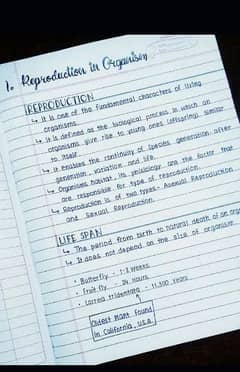 1. Reproduction in Organism
REPRODUCTION
↳ It is one of the Fundamental characters of living
organisms.
↳ It is defined as the biological process in which an
organisms give rise to young ones (offspring) similar
to itself.
↳ It enables the continuity of species generation after
generation, variation and life.
↳ Organisms habitat, its physiology are the factor that
are responsible for type of reproduction.
↳ Reproduction is of two types - Asexual Reproduction
and Sexual Reproduction.
LIFE SPAN
↳ The period from birth to natural death of an org
↳ It does not depend on the size of organism.
• Butterfly - 1-2 weeks
• Fruit fly - 24 hours
• Larrea tridentata - 11,700 years
Oldest plant found
in California, U.S.A